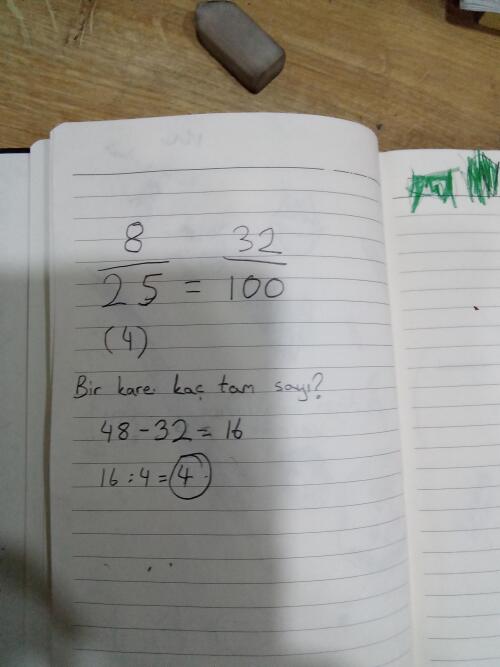 8/25 = 32/100
(4)
Bir kare kaç tam sayı?
48-32=16
16:4=4